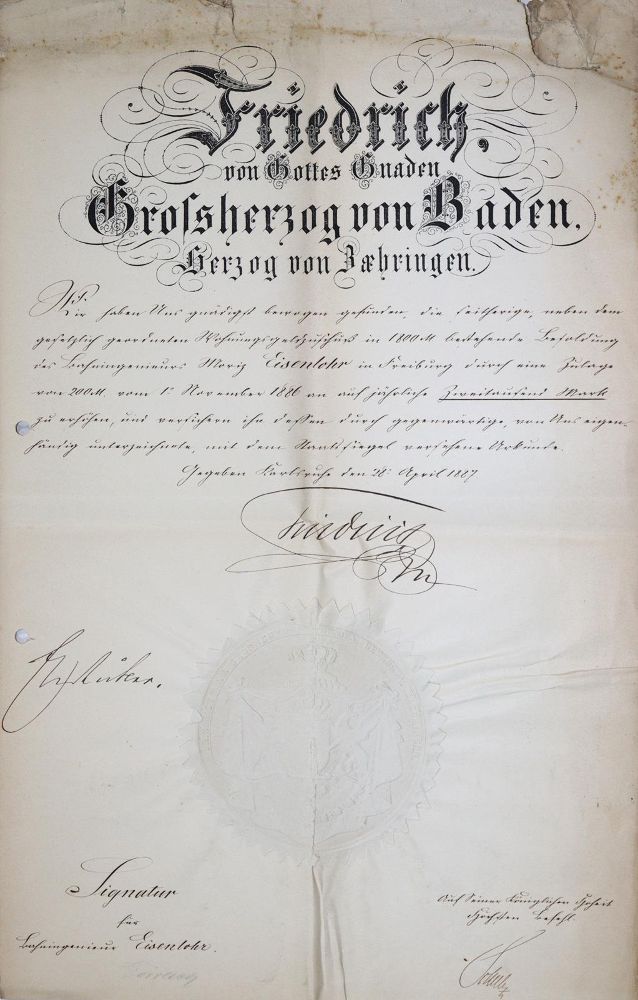 Friedrich,
von Gottes Gnaden
Grossherzog von Baden,
Herzog von Zæhringen.
Wir haben Uns gnädigst bewogen gefunden, die seitherige, neben dem
gesetzlich geordneten Wohnungsgeldzuschuß in 1800 M bestehende Besoldung
des Bahningenieurs Moriz Eisenlohr in Freiburg durch eine Zulage
von 200 M. vom 1. November 1886 an auf jährliche Zweitausend Mark
zu erhöhen, und versichern ihn dessen durch gegenwärtige, von Uns eigen-
händig unterzeichnete, mit dem Staatssiegel versehene Urkunde.
Gegeben Karlsruhe den April 1887.
Friedrich
Signatur
für
Bahningenieur Eisenlohr.
Auf Seiner Königlichen Hoheit
Höchsten Befehl.